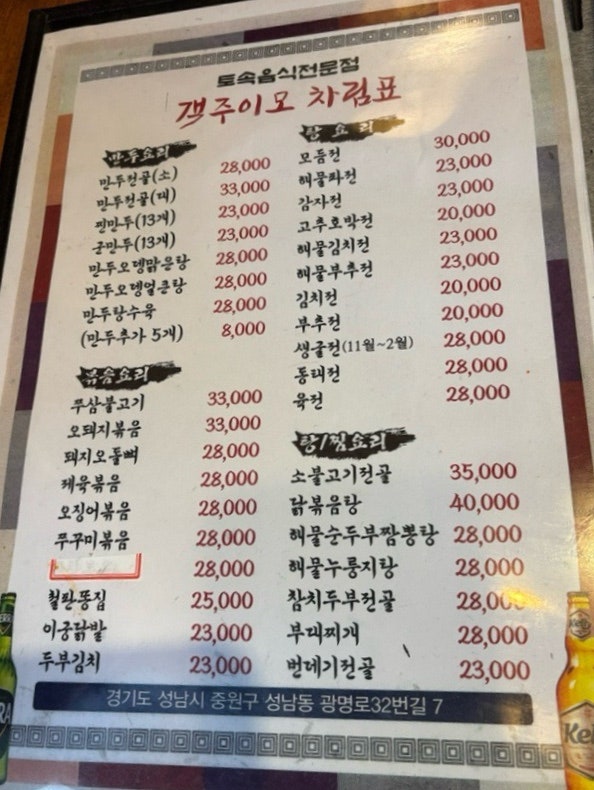 토속음식전문점
객주이모 차림표
만두요리
만두전골(소) 28,000
만두전골(대) 33,000
찐만두(13개) 23,000
군만두(13개) 23,000
만두오뎅맑은탕 28,000
만두오뎅얼큰탕 28,000
만두탕수육 28,000
(만두추가 5개) 8,000
볶음요리
쭈삼불고기 33,000
오돼지볶음 33,000
돼지오돌뼈 28,000
제육볶음 28,000
오징어볶음 28,000
쭈꾸미볶음 28,000
28,000
철판똥집 25,000
이궁닭발 23,000
두부김치 23,000
요리
모듬전 30,000
해물파전 23,000
감자전 23,000
고추호박전 20,000
해물김치전 23,000
해물부추전 23,000
김치전 20,000
부추전 20,000
생굴전(11월~2월) 28,000
동태전 28,000
육전 28,000
탕/찜요리
소불고기전골 35,000
닭볶음탕 40,000
해물순두부짬뽕탕 28,000
해물누룽지탕 28,000
참치두부전골 28,000
부대찌개 28,000
번데기전골 23,000
경기도 성남시 중원구 성남동 광명로32번길 7